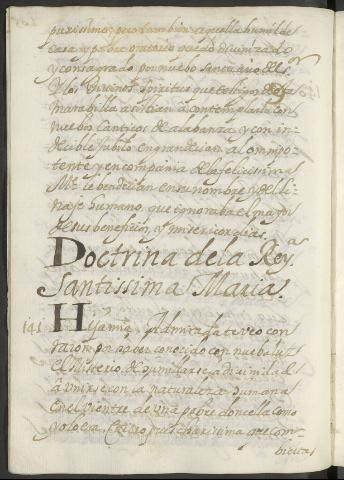 purissimo; pero tambien aquella humilde
casa y pobre oratorio quedo divinizado
y consagrado por nuebo sanctuario del Sr
y los divinos spiritus que testigos desta
marabilla asistian a contemplarla con
nuebos canticos de alabanza y con in-
decible jubilo engrandecian al omnipo-
tente y en compania de la felicissima
Me le bendecian en su nombre y del li-
naje humano, que ignoraba el mayor
de sus beneficios y misericordias.
Doctrina de la Reya
Santissima Maria.
141 Hija mia, Admirada te veo con
raçon por haver conocido con nueba luz
el misterio de humillarse la divinidad
a unirse con la naturaleza humana
en el vientre de una pobre doncella como
yo lo era. Quiero pues charissima que con-
biertas